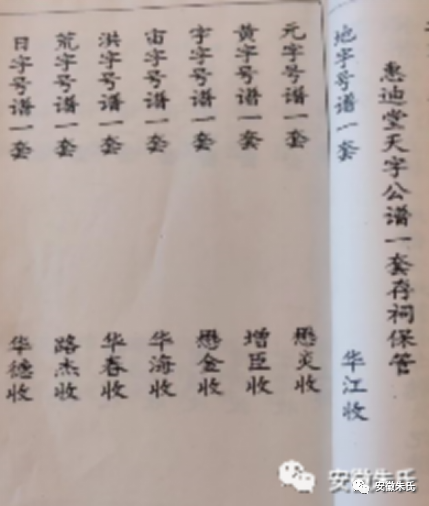 惠迪堂天字公谱一套存祠保管
地字号谱一套 华江收
元字号谱一套 懋炎收
黄字号谱一套 增臣收
宇字号谱一套 懋金收
宙字号谱一套 华海收
洪字号谱一套 华春收
荒字号谱一套 路杰收
日字号谱一套 华德收
安徽朱氏
安徽朱氏